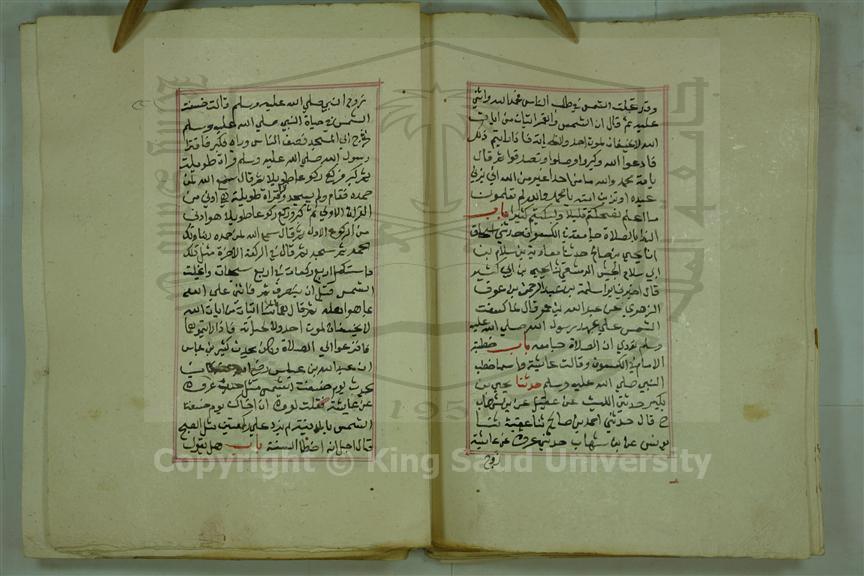 وقد تجلت الشمس فخطب الناس فحمد الله واثني
عليه ثم قال ان الشمس والقمر ايتان من ايات
الله لا يخسفان لموت احد ولا لحياته فاذا رايتم ذلك
فادعوا الله وكبروا وصلوا وتصدقوا ثم قال
يا امة محمد والله ما من احد اغير من الله ان يزني
عبده او تزني امته يا امة محمد والله لو تعلمون
ما اعلم لضحكتم قليلا ولبكيتم كثيرا باب
النداء بالصلاة جامعة في الكسوف حدثني اسحاق
انا يحيي بن صالح حدثنا معاوية بن سلام بن
ابي سلام الحبشي الدمشقي ثنا يحيي بن ابي كثير
قال اخبرني ابو سلمة بن عبد الرحمن بن عوف
الزهري عن عبد الله بن عمرو قال لما كسفت
الشمس علي عهد رسول الله صلي الله عليه
وسلم نودي ان الصلاة جامعه باب خطبة
الامام في الكسوف وقالت عائشة واسما خطب
النبي صلي الله عليه وسلم حدثنا يحيي بن
بكير حدثني الليث عن عقيل عن ابن شهاب
ح قال حدثني احمد بن صالح ثنا عنبسة ثنا
يونس عن ابن شهاب حدثني عروة عن عائشة
زوج
زوج النبي صلي الله عليه وسلم قالت خسفت
الشمس في حياة النبي صلي الله عليه وسلم
فخرج الي المسجد فصف الناس وراه فكبر فاقترا
رسول الله صلي الله عليه وسلم قراة طويلة
ثم كبر فركع ركوعا طويلا ثم قال سمع الله لمن
حمده فقام ولم يسجد وقرا قراة طويلة هي ادني من
القراة الاولي ثم كبر وركع ركوعا طويلا هو ادني
من الركوع الاول ثم قال سمع الله لمن حمده ربنا ولك
الحمد ثم سجد ثم قال في الركعة الاخرة مثل ذلك
فاستكمل اربع ركعات في اربع سجدات وانجلت
الشمس قبل ان ينصرف ثم قام فاثني علي الله
بما هو اهله ثم قال هما ايتان من ايات الله
لا يخسفان لموت احد ولا لحياته فاذا رايتموها
فافزعوا الي الصلاة وكان يحدث كثير بن عباس
ان عبد الله بن عباس رضي الله كان
يحدث يوم خسفت الشمس مثل حديث عروة
عن عائشة فقلت لعروة ان اخاك يوم خسفت
الشمس بالمدينة لم يزد علي ركعتين مثل الصبح
قال اجل انه اخطا السنة باب هل يقول
Copyright © King Saud University
1957